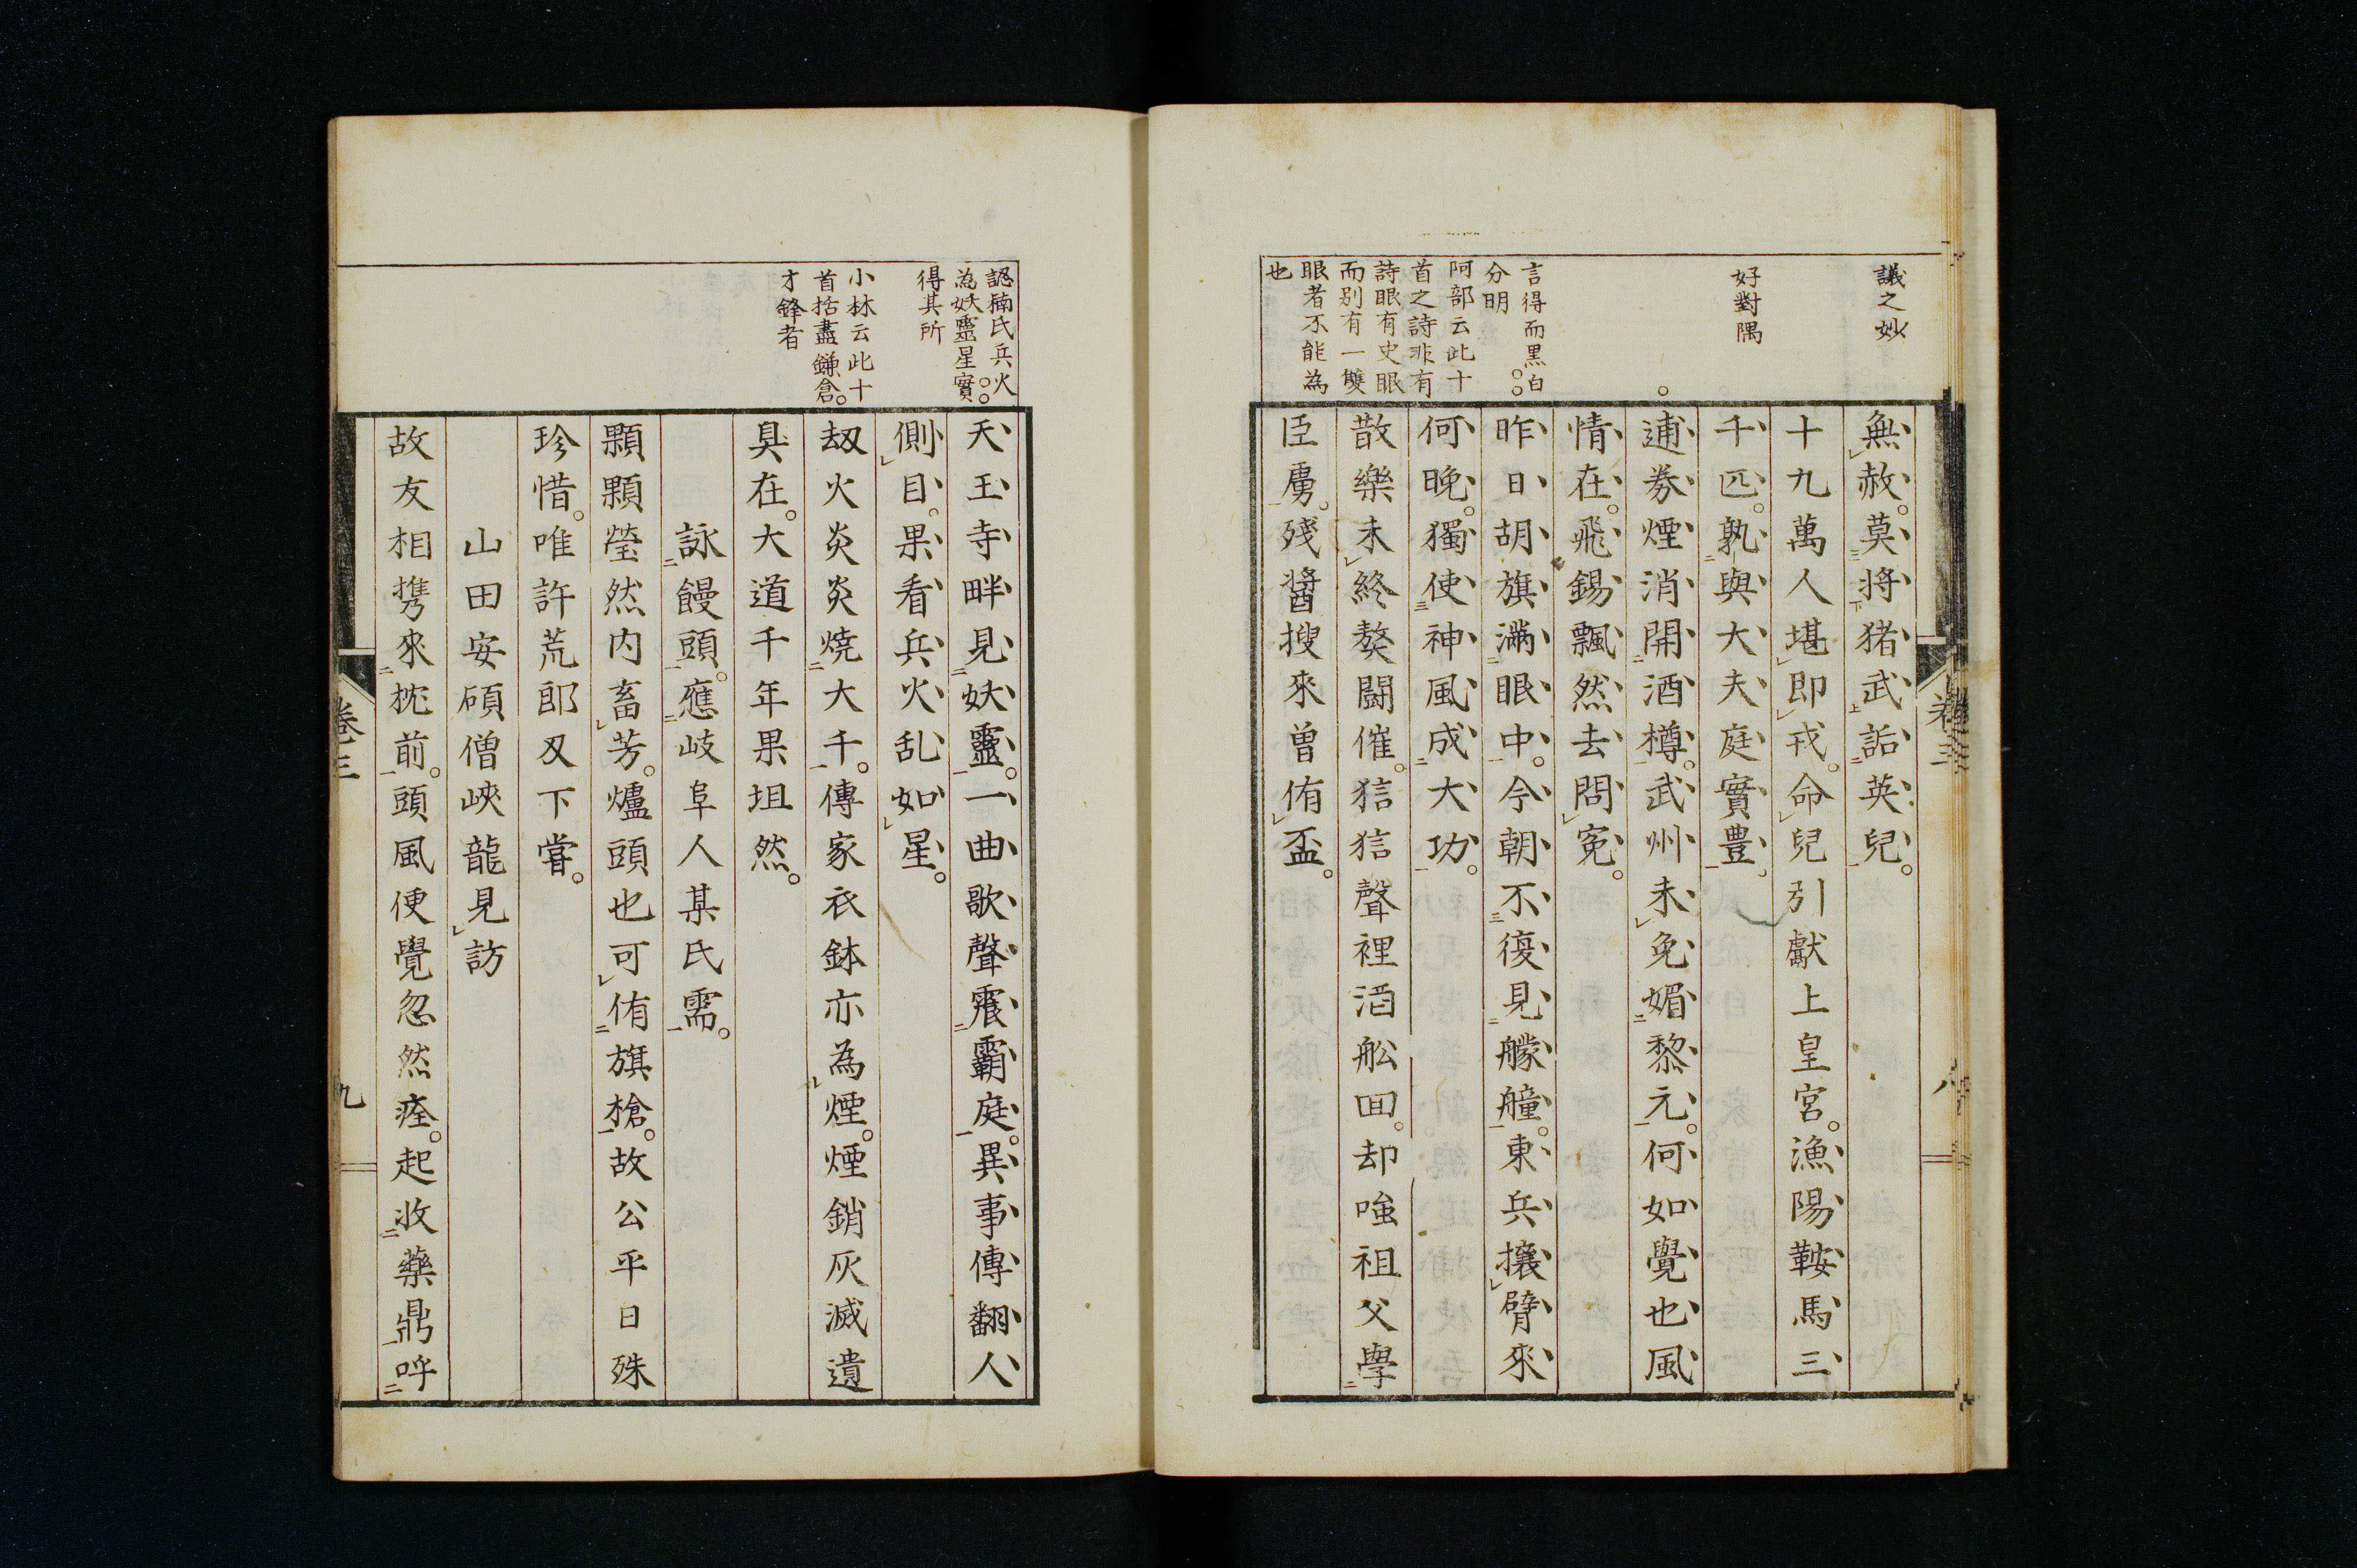 議之妙
好對隅
言得而黒白
分明
阿部云此十
首之詩非有
詩眼有史眼
而别有一雙
眼者不能為
也
無赦莫將猪武詬英兒
十九萬人堪即戎命兒引獻上皇宮漁陽鞍馬三
千匹孰與大夫庭實豊
逋券煙消開酒樽武州未免媚黎元何如覺也風
情在飛錫飄然去問寃
昨日胡旗滿眼中今朝不復見艨艟東兵攘臂來
何晚獨使神風成大功
散樂未終獒闘催狺狺聲裡滔舩囬却嗤祖父學
臣虜殘醤搜來曽侑盃
卷三
八
認楠氏兵火
為妖靈星實
得其所
小林云此十
首括盡鎌倉
才鋒者
天王寺畔見妖靈一曲歌聲震霸庭異事傳翻人
側目果看兵火乱如星
刼火炎炎燒大千傳家衣鉢亦為煙煙銷灰滅遺
臭在大道千年果坦然
詠饅頭應岐阜人某氏需
顆顆瑩然内畜芳爐頭也可侑旗槍故公平日殊
珍惜唯許荒郎刄下嘗
山田安碩僧峽龍見訪
故友相携來枕前頭風便覺忽然痊起收藥鼎呼
卷三
九